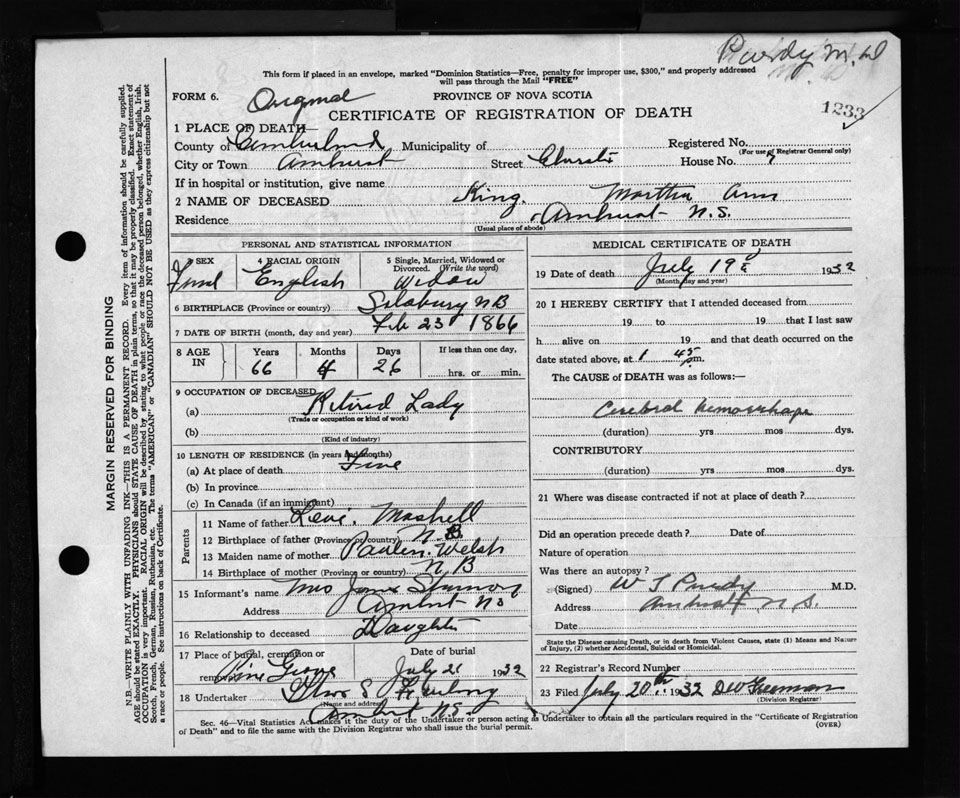 Purdy M.D
This form if placed in an envelope, marked "Dominion Statistics—Free, penalty for improper use, $300," and properly addressed
will pass through the Mail "FREE"
FORM 6. Original PROVINCE OF NOVA SCOTIA
CERTIFICATE OF REGISTRATION OF DEATH
1233
1 PLACE OF DEATH—
County of Cumberland Municipality of Registered No.
(For use of Registrar General only)
City or Town Amherst Street Church St House No.
If in hospital or institution, give name
2 NAME OF DECEASED King. Martha Ann
Residence Amherst N.S.
(Usual place of abode)
PERSONAL AND STATISTICAL INFORMATION
3 SEX 4 RACIAL ORIGIN 5 Single, Married, Widowed or
Divorced. (Write the word)
English Widow
6 BIRTHPLACE (Province or country) NB
7 DATE OF BIRTH (month, day and year) Feb 23 1866
8 AGE IN Years Months Days If less than one day,
66 4 26 hrs. or min.
9 OCCUPATION OF DECEASED
(a) Retired Lady
(Trade or occupation or kind of work)
(b)
(Kind of industry)
10 LENGTH OF RESIDENCE (in years and months)
(a) At place of death
(b) In province
(c) In Canada (if an immigrant)
Parents
11 Name of father Levi.
12 Birthplace of father (Province or country) N.B.
13 Maiden name of mother Welsh
14 Birthplace of mother (Province or country) N B
15 Informant's name Mrs
Address Amherst NS
16 Relationship to deceased Daughter
17 Place of burial, cremation or Date of burial
removal Pine Grove July 21 1932
18 Undertaker
(Name and address)
Amherst N.S.
MEDICAL CERTIFICATE OF DEATH
19 Date of death July 19th 1932
(Month, day and year)
20 I HEREBY CERTIFY that I attended deceased from
19 to 19 that I last saw
h alive on 19 and that death occurred on the
date stated above, at 1 45 pm.
The CAUSE of DEATH was as follows:—
Cerebral hemorrhage
(duration) yrs mos dys.
CONTRIBUTORY
(duration) yrs mos dys.
21 Where was disease contracted if not at place of death?
Did an operation precede death? Date of
Nature of operation
Was there an autopsy?
(Signed) W T Purdy M.D.
Address Amherst N.S.
Date
State the Disease causing Death, or in death from Violent Causes, state (1) Means and Nature
of Injury, (2) whether Accidental, Suicidal or Homicidal.
22 Registrar's Record Number
23 Filed July 20th 1932 DW Freeman
(Division Registrar)
Sec. 46—Vital Statistics Act makes it the duty of the Undertaker or person acting as Undertaker to obtain all the particulars required in the "Certificate of Registration
of Death" and to file the same with the Division Registrar who shall issue the burial permit.
(OVER)
MARGIN RESERVED FOR BINDING
N.B.—WRITE PLAINLY WITH UNFADING INK—THIS IS A PERMANENT RECORD. Every item of information should be carefully supplied.
AGE should be stated EXACTLY. PHYSICIANS should STATE CAUSE OF DEATH in plain terms, so that it may be properly classified. Exact statement of
OCCUPATION is very important. RACIAL ORIGIN will be described by stating to what people or race the deceased person belonged, whether English, Irish,
Scotch, French, German, Russian, Ruthenian, etc. The terms "AMERICAN" or "CANADIAN" SHOULD NOT BE USED as they express citizenship but not
a race or people. See instructions on back of Certificate.